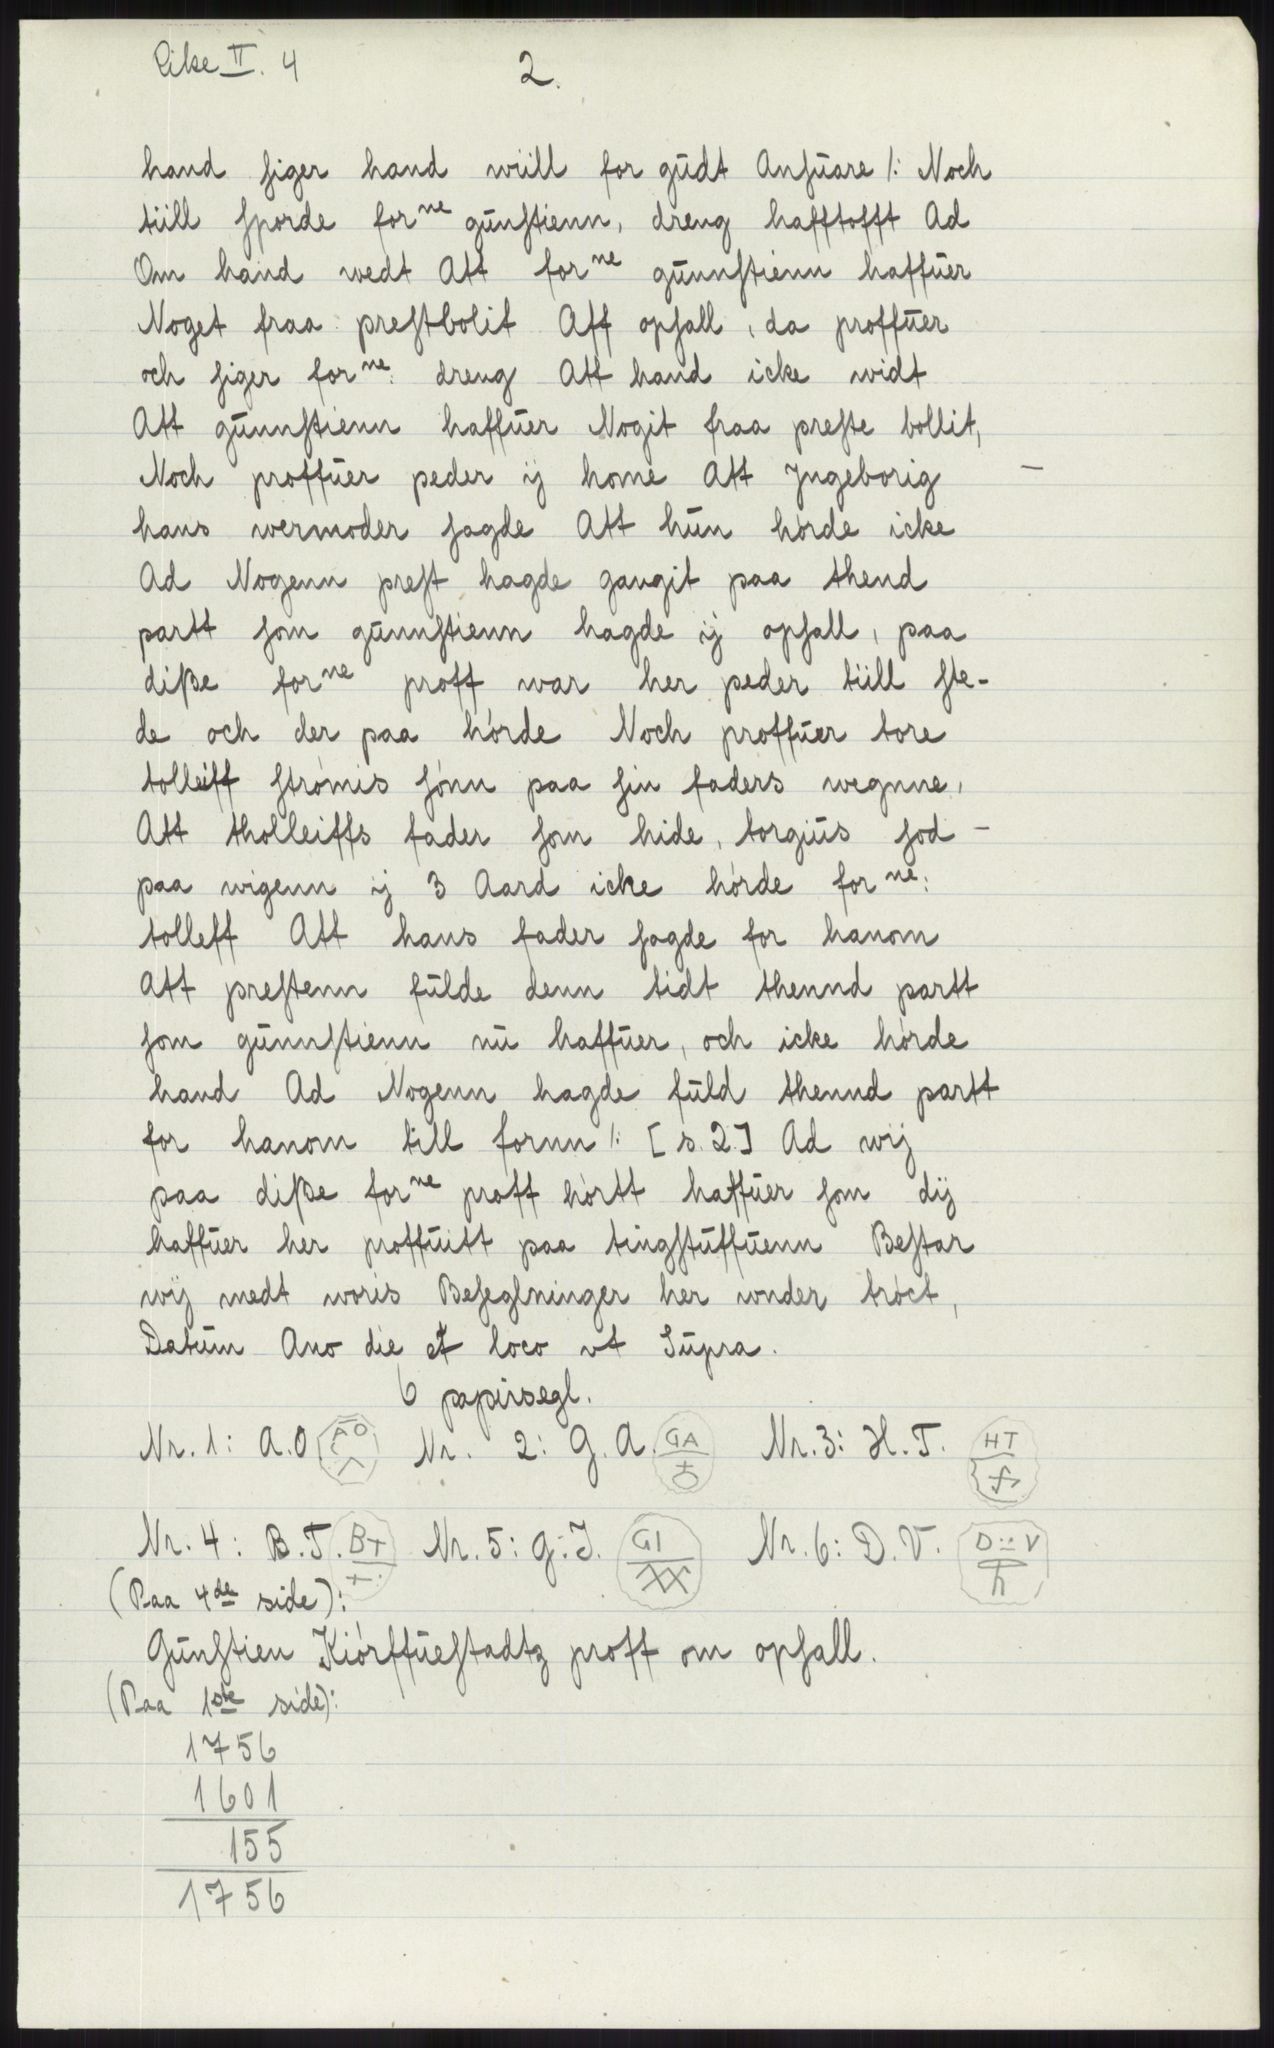 Eike II. 4
2.
hand siger hand wiill for gudt Ansuare /: Noch
tiill sporde forne gunstienn, dreng hafftofft Ad
Om hand wedt Att forne gunnstienn haffuer
Noget fraa prestbolit Aff opsall, da proffuer
och siger forne: dreng Att hand icke widt
Att gunnstienn haffuer Nogit fraa preste bollit,
Noch proffuer peder ij home Att Jngeborig –
hans wermoder sagde Att hun hórde icke
Ad Nogenn prest hagde gangit paa thend
partt som gunnstienn hagde ij opsall, paa
diße forne proff war her peder tiill ste-
de och der paa hórde Noch proffuer tore
tolleiff strómis sónn paa sin faders wegnne,
Att tholleiffs fader som hide, torgius sod –
paa wigenn ij 3 Aard icke hórde forne:
tolleff Att hans fader sagde for hanom
Att prestenn fulde denn tidt thennd partt
som gunnstienn nu haffuer, och icke hórde
hand Ad Nogenn hagde fuld thennd partt
for hanom till fornn /: [s. 2.] Ad wij
paa diße forne proff hórtt haffuer som dij
haffuer her proffuitt paa tingstuffuenn Bestar
wij medt woris Beseglninger her wnder tróct,
Datum Ano die et loco vt Supra.
6 papirsegl.
Nr. 1: A.O AO Nr. 2: G. A. GA Nr. 3: H. T. HT
Nr. 4: B. T. BT Nr. 5: G. J. GI Nr. 6: D. V. D V
(Paa 4de side):
Gunstien Kiórffuestadtz proff om opsall.
(Paa 1ste side):
1756
1601
155
1756